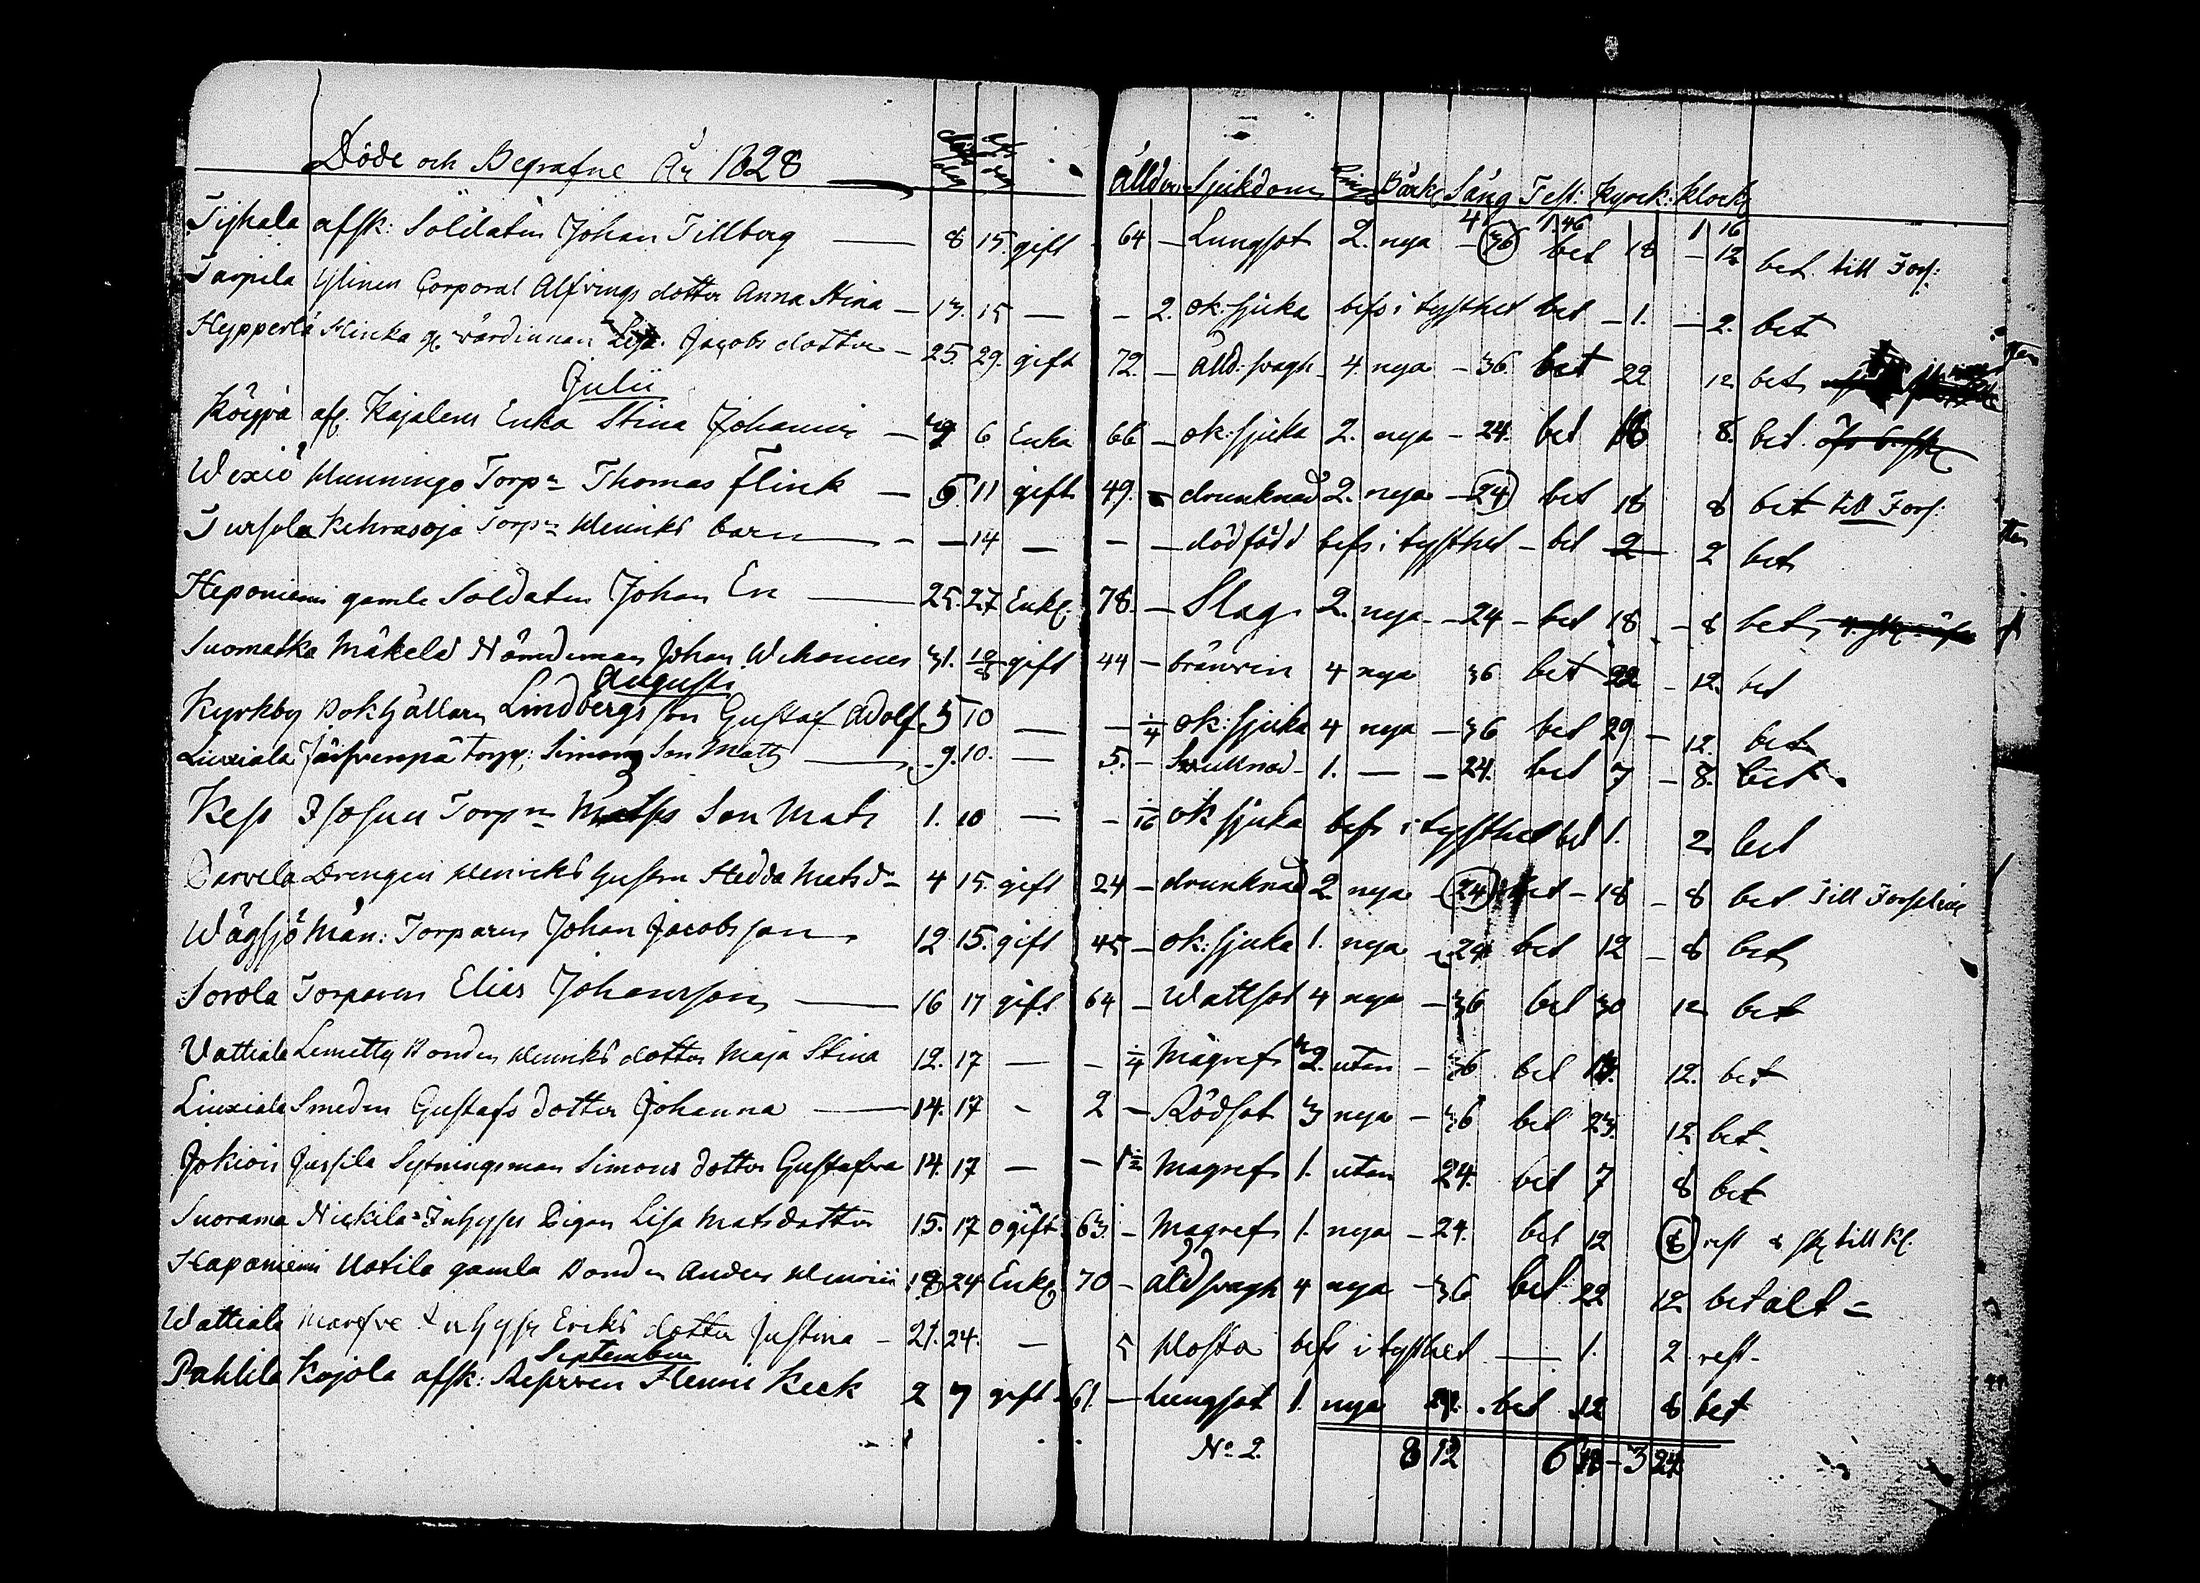 Döde och Begrafne År 1828 Ållder Sjukdom Ring Bårkl Sång Test: Kyrck: Klock
4 1.46 1 16
Tistiala afsk: Soldaten Johan Tillberg — 8 15. gift 64 — Lungsot 2. nya — 36 bet 18 — 12 bet till Fors:
Tarpila Corporal Alfvings dotter Anna Stina — 13. 15 — — 2. ok: sjuka befs i tysthet bet — 1. — 2. bet
Hypperlä Hinka g. värdinnan Lisa Jacobs dotter — 25. 29. gift 72. —Ålld: svagh — 4 nya — 36. bet 22 12 bet
Julii
Köyrä afl. Kajalens Enka Stina Johannis — 6 Enka 66 — ok: sjuka 2. nya — 24. bet 18 8. bet.
Wexiö Munningo Torpn Thomas Flink — 5. 11 gift 49. drunknad 2. nya — 24 bet 18 8 bet till Fors:
Tursola Kehrasoja Torpn Henriks barn — — 14 — — — dödfödd befs i tysthet — bet 2 2 bet
Heponiemi gamle Soldaten Johan En — 25. 27 Enkl. 78. — Slag 2. nya — 24 — bet 18 — 8 bet
Suomatka Mäkelä Nämdeman Johan Wihonius 31. 10/8 gift 44 — bränvin 4 nya 36 bet 22 — 12. bet
Augusti
Kyrkby Bokhållarn Lindbergs son Gustaf Adolf. 5 10 — — ¼ ok: sjuka 4 nya — 36 bet 29 — 12. bet
Liuxiala Järfvenpä Torp: Simons Son Matts — 9. 10. — 5. — Svullnad — 1. — — 24. bet 7 — 8. bet
Keso Isosuo Torpn Matss Son Mats 1. 10 — — 1/16 ok sjuka befs i tysthet bet 1. 2 bet
Sarvela Drengen Henriks hustru Hedda Matsdr 4 15. gift 24 — drunknad 2 nya — 24 bet — 18 — 8 bet Till Forselius
Wågsjö Män: Torparen Johan Jacobsson 12 15. gift 45 — ok: sjuka 1. nya — 24 bet 12 — 8 bet
Sorola Torparen Elias Johansson — 16 17 gift 64 — Wattsot 4 nya — 36 bet 30 12 bet
Vattiala Lemetty Bonden Henriks dotter Maja Stina 12. 17 — — ¼ Mägref 2. utan — 36 bet 12. bet
Liuxiala Smeden Gustafs dotter Johanna — 14. 17 - 2 — Rödsot 3 nya — 36 bet 23. 12 bet
Jokiois Jussila Sytningsman Simons dotter Gustafva 14. 17 — — ½ Magref 1. utan 24. bet 7 8 bet
Suorama Nickila Inhyses Pigan Lisa Matsdotter 15. 17 ogift 63. — Magref 1. nya — 24. bet 12 8 rest 8 sk till Kl.
Haponiemi Uotila gamla Bonden Anders Henrici 24 Enkl 70 — åldsvagh 4 nya — 36 bet 22 12 betalt =
Wattiala Inhyses Eriks dotter Justina — 21. 24. — 5 Hosta befs i tysthet — 1. 2 rest.
September
Pahlila Kojola afsk: Reserven Henric Keck 2 7 gift 61. — Lungsot 1. nya 24. bet 12 8 bet
No 2. 8 12 6 — 3 24